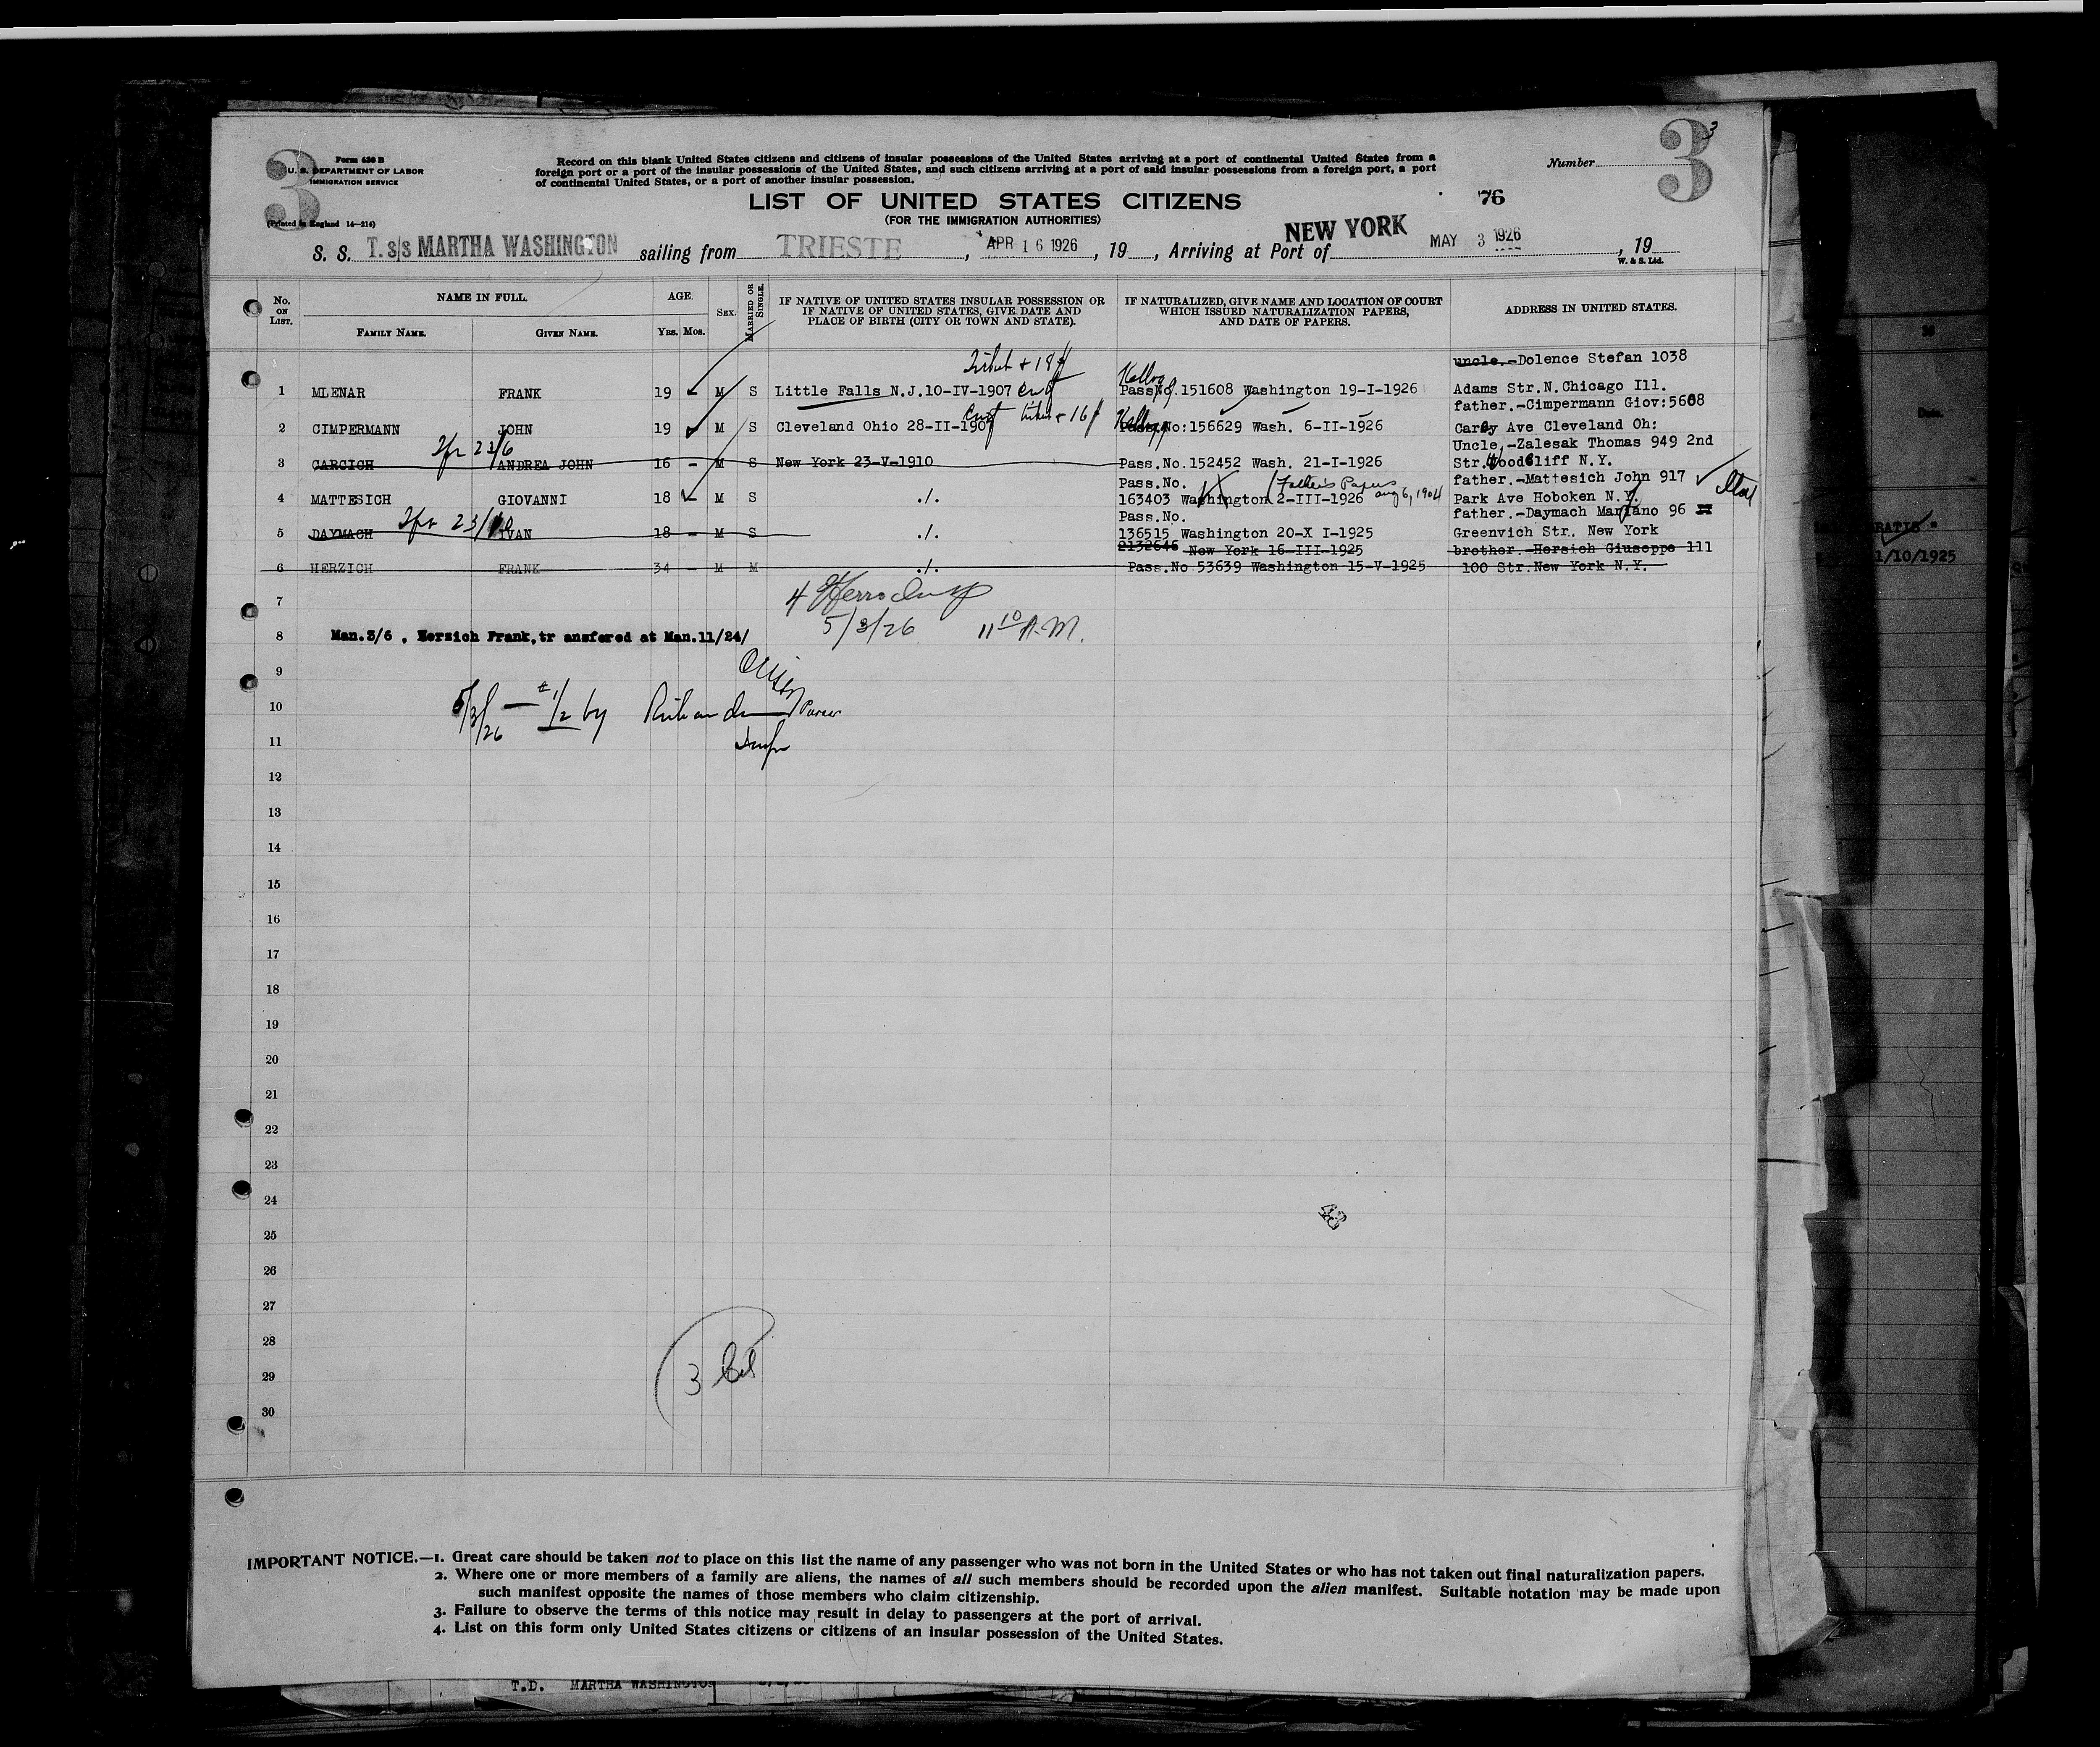 3
Form 630 B
U. S. DEPARTMENT OF LABOR
IMMIGRATION SERVICE
(Printed in England 14—214)
Record on this blank United States citizens and citizens of insular possessions of the United States arriving at a port of continental United States from a
foreign port or a port of the insular possessions of the United States, and such citizens arriving at a port of said insular possessions from a foreign port, a port
of continental United States, or a port of another insular possession.
Number
3
3
76
LIST OF UNITED STATES CITIZENS
(FOR THE IMMIGRATION AUTHORITIES)
S. S. T. s/s MARTHA WASHINGTON sailing from TRIESTE, APR 16 1926, 19 , Arriving at Port of NEW YORK MAY 3 1926, 19
W. & S. Ltd.
No. ON LIST.
NAME IN FULL.
FAMILY NAME.
GIVEN NAME.
AGE.
Yrs. Mos.
SEX.
MARRIED OR SINGLE.
IF NATIVE OF UNITED STATES INSULAR POSSESSION OR
IF NATIVE OF UNITED STATES, GIVE DATE AND
PLACE OF BIRTH (CITY OR TOWN AND STATE).
IF NATURALIZED, GIVE NAME AND LOCATION OF COURT
WHICH ISSUED NATURALIZATION PAPERS,
AND DATE OF PAPERS.
ADDRESS IN UNITED STATES.
uncle.-Dolence Stefan 1038
1 MLENAR FRANK 19 - M S Little Falls N.J.10-IV-1907 PassNo.151608 Washington 19-I-1926 Adams Str.N.Chicago Ill.
father.-Cimpermann Giov:5608
2 CIMPERMANN JOHN 19 M S Cleveland Ohio 28-II-1907 No:156629 Wash. 6-II-1926 Carry Ave Cleveland Oh:
Uncle,-Zalesak Thomas 949 2nd
3 CARCICH ANDREA JOHN 16 - M S New York 23-V-1910 Pass.No.152452 Wash. 21-I-1926 Str.Woodcliff N.Y.
Pass.No. Father's Papers Aug 6, 1904 father.-Mattesich John 917
4 MATTESICH GIOVANNI 18 - M S ./. 163403 Washington 2-III-1926 Park Ave Hoboken N.Y.
Pass.No. father.-Daymach Mariano 96
5 DAYMACH IVAN 18 - M S ./. 136515 Washington 20-X I-1925 Greenvich Str. New York
2132646 New York 16-III-1925 brother.-Hersich Giuseppe 111
6 HERZICH FRANK 34 - M M ./. Pass.No 53639 Washington 15-V-1925 100 Str.New York N.Y.
7
5/3/26 11 10 A.M.
8 Man.3/6 , Hersich Frank,tr ansfered at Man.11/24/
9
10
11
12
13
14
15
16
17
18
19
20
21
22
23
24
25
26
27
28
29
30
IMPORTANT NOTICE.—1. Great care should be taken not to place on this list the name of any passenger who was not born in the United States or who has not taken out final naturalization papers.
2. Where one or more members of a family are aliens, the names of all such members should be recorded upon the alien manifest. Suitable notation may be made upon
such manifest opposite the names of those members who claim citizenship.
3. Failure to observe the terms of this notice may result in delay to passengers at the port of arrival.
4. List on this form only United States citizens or citizens of an insular possession of the United States.
T.D. MARTHA WASHINGTON
Date.
1/10/1925